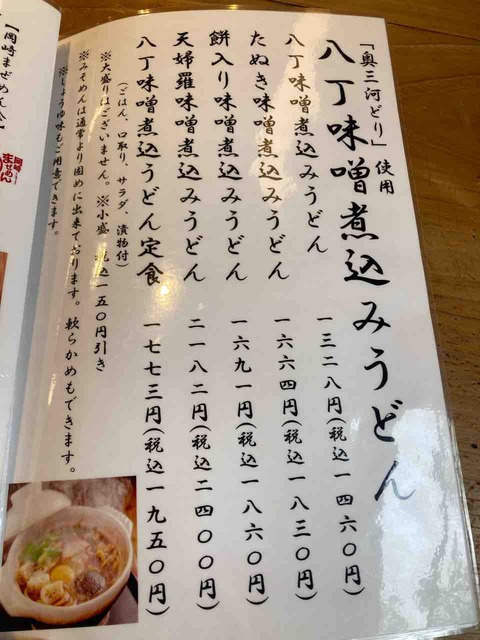 「奥三河どり」使用
八丁味噌煮込みうどん
八丁味噌煮込みうどん 一三二八円(税込一四六〇円)
たぬき味噌煮込みうどん 一六六四円(税込一八三〇円)
餅入り味噌煮込みうどん 一六九一円(税込一八六〇円)
天婦羅味噌煮込みうどん 二一八二円(税込二四〇〇円)
八丁味噌煮込うどん定食 一七七三円(税込一九五〇円)
(ごはん、口取り、サラダ、漬物付)
※大盛りはございません。※小盛 税込一五〇円引き
※みそめんは通常より固めに出来ております。軟らかめもできます。
※しょうゆ味もご用意できます。
【岡崎まぜめん会】
岡崎
まぜめん